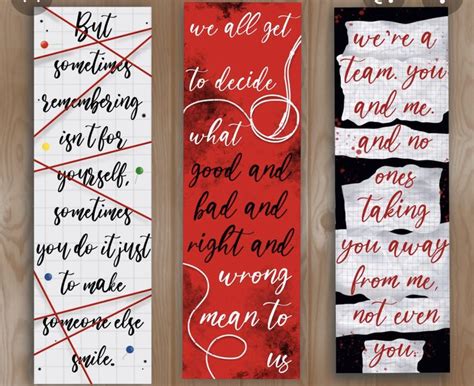 But
sometimes
remembering
isn't for
yourself,
sometimes
you do it just
to make
someone else
smile.
we all get
to decide
what
good and
bad and
right and
wrong
mean to
us
we're a
team. you
and me.
and no
ones
taking
you away
from me,
not even
you.